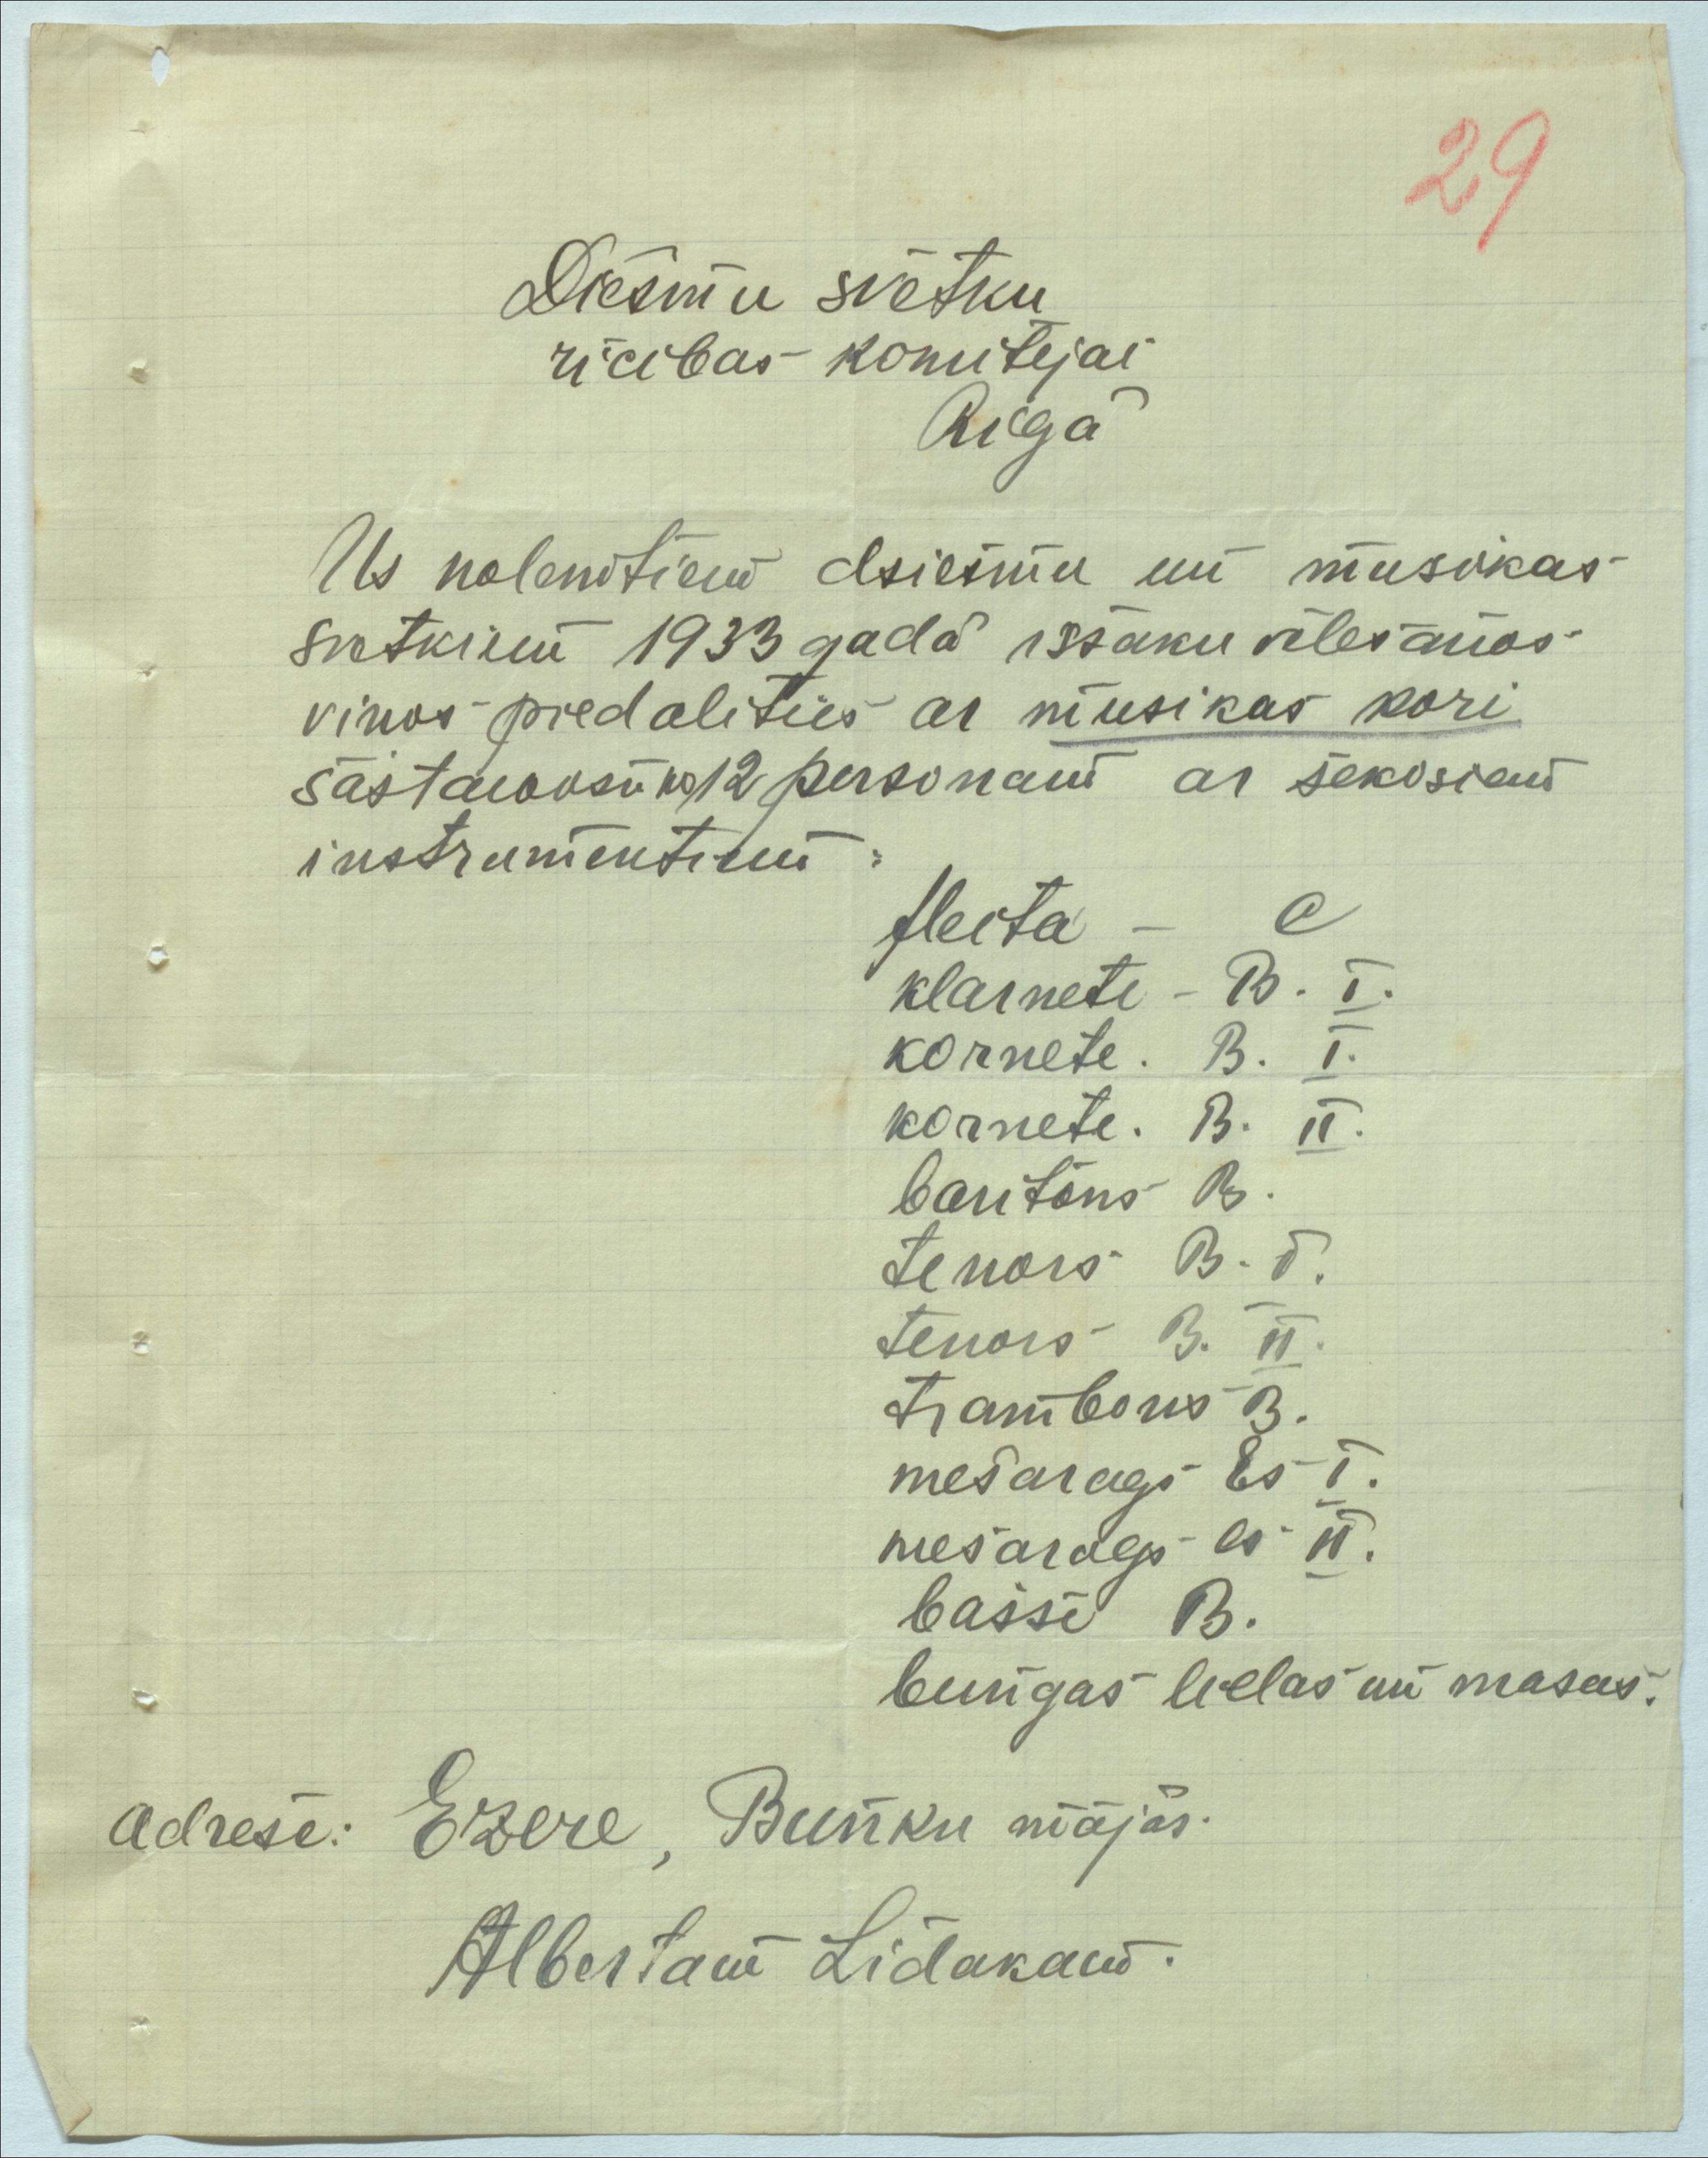 29
Diesmu svetku
rīcibas komitejai
Rigā
Us nolemtiem dsiesmu un musikas
svetkiem 1933 gadā issaku vēlesanos
vinos piedalitiês ar musikas kori
sastavosu no 12 personam ar sekosiem
instrumentiem:
fleita - C
klarnete - B. I.
kornete. B. I.
kornete. B. II.
baritons B.
tenors B. I.
tenors B. II.
trambons B.
mesarags Es I.
mesarags es II.
bassi B.
bungas lielas un masas.
Adrese: Ezere, Bunku mājās.
Albertam Lidakam.